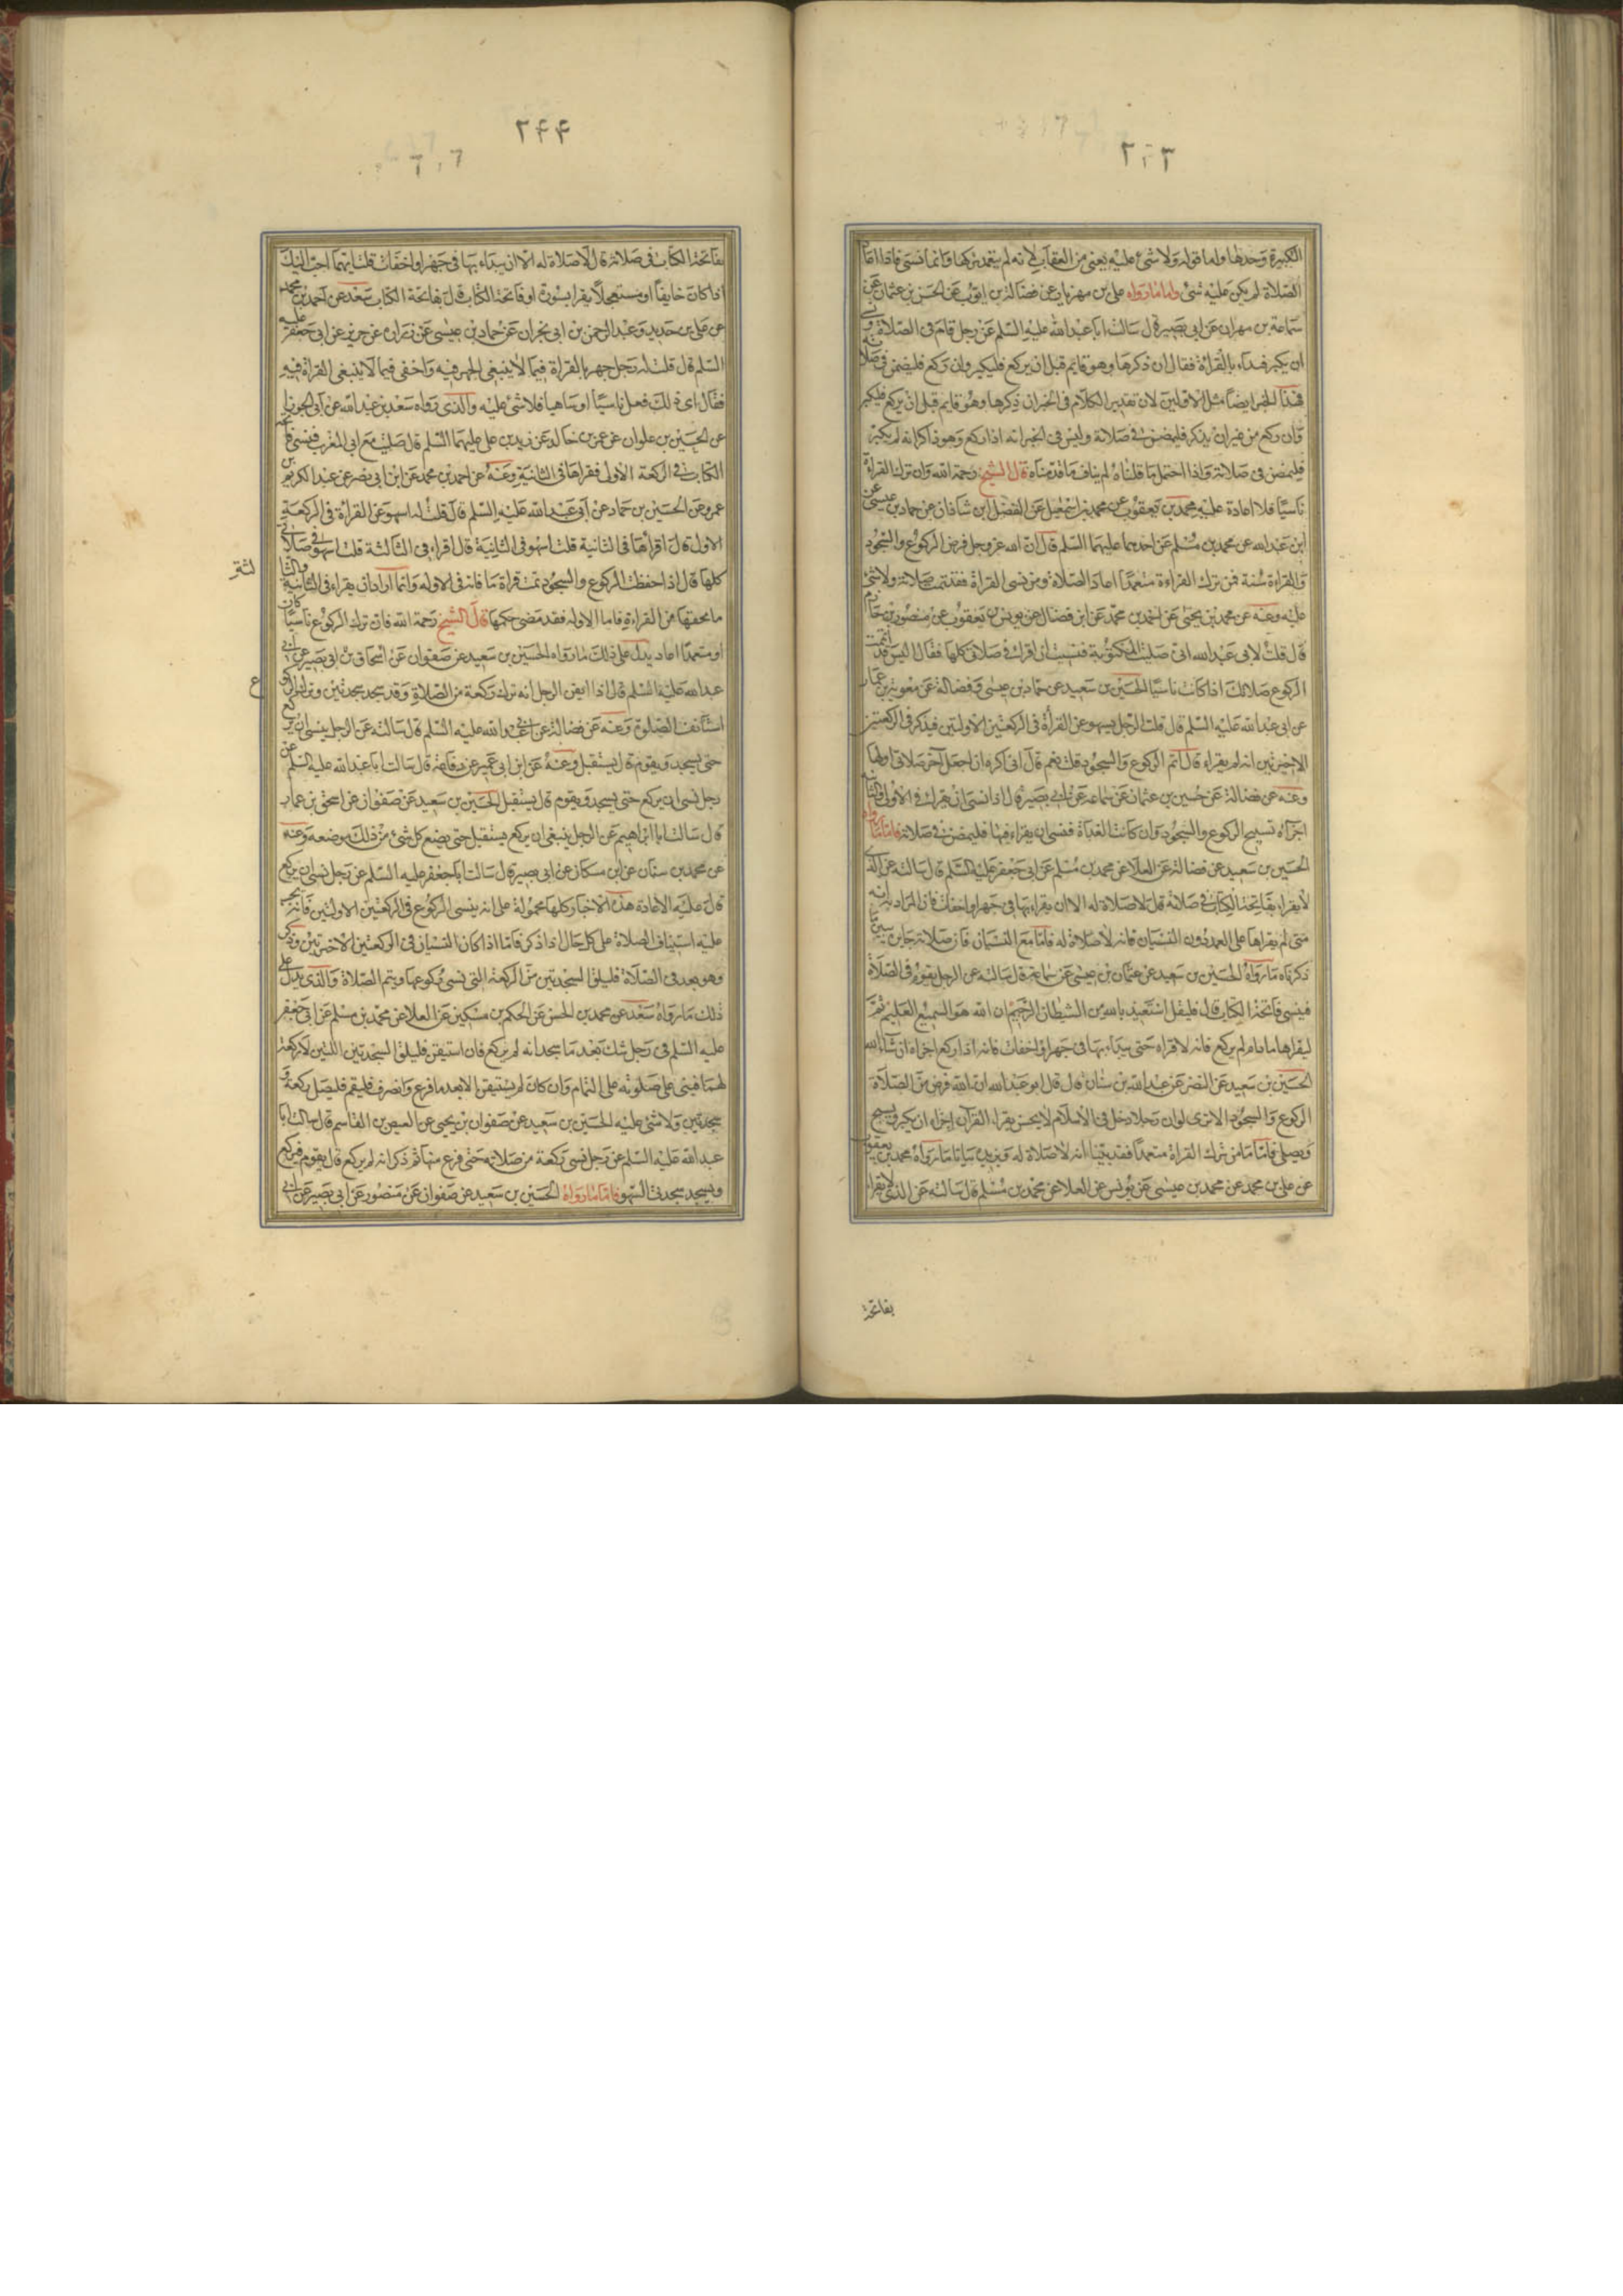 ٢٤٣
الكبيرة وحدها واما قوله ولا شئ عليه يعنى من العقاب لانه لم يتعمد تركها وانما نسى فاذا اعاد
الصلاة لم يكن عليه شئ واما ما رواه على بن مهزيار عن فضالة بن ايوب عن الحسين بن عثمان عن
سماعة بن مهران عن ابى بصير قال سالت ابا عبد الله عليه السلم عن رجل قام فى الصلاة ونسى
ان يكبر فبداء بالقراءة فقال ان ذكرها وهو قايم قبل ان يركع فليكبر وان ركع فليمض فى صلاته
فهذا الخبر ايضا مثل الاولين لان تقدير الكلام فى الخبر ان ذكرها وهو قايم قبل ان يركع فليكبر
وان ركع من غير ان يذكر فليمض فى صلاته وليس فى الخبر انه اذا ركع وهو ذاكرا انه لم يكبر
فليمض فى صلاته واذا احتمل ما قلناه لم يناف ما قدمناه قال الشيخ رحمة الله وان ترك القراءة
ناسيا فلا اعادة عليه محمد بن يعقوب عن محمد بن اسمعيل عن الفضل ابن شاذان عن حماد بن عيسى عن
ابن عبد الله عن محمد بن مسلم عن احدهما عليهما السلم قال ان الله عز وجل فرض الركوع والسجود
والقراءة سنة فمن ترك القراءة متعمدا اعاد الصلاة ومن نسى القراة فقد تمت صلاته ولا شئ
عليه وعنه عن محمد بن يحيى عن احمد بن محمد عن ابن فضال عن يونس بن يعقوب عن منصور بن حازم
قال قلت لابى عبد الله انى صليت المكتوبة فنسيت ان اقرا فى صلاتى كلها فقال اليس قد اتممت
الركوع صلاتك اذا كانت ناسيا الحسين بن سعيد عن حماد بن عيسى و فضالة عن معوية بن عمار
عن ابى عبد الله عليه السلم قال قلت الرجل يسهو عن القرأة فى الركعتين الاولتين فيذكر فى الركعتين
الاخيرتين انه لم يقراء قال اتم الركوع والسجود قلت نعم قال انى اكره ان اجعل آخر صلاتى اولها
وعنه عن فضالة عن حسين بن عثمان عن سماعه عن ابى بصير قال اذا نسى ان يقرا فى الاولى والثانية
اجزاه تسبيح الركوع والسجود وان كانت الغداة فنسى ان يقراء فيها فليمض فى صلاته فاما ما رواه
الحسين بن سعيد عن فضالة عن العلا عن محمد بن مسلم عن ابى جعفر عليه السلم قال سالته عن الذى
لا يقراء بفاتحة الكتاب فى صلاته قال لا صلاة له الا ان يقراء بها فى جهر او اخفات فان المراد به انه
متى لم يقراها على العمد دون النسيان فانه لا صلاة له فاما مع النسيان فان صلاته جايزه يبين ما
ذكرناه ما رواه الحسين بن سعيد عن عثمان بن عيسى عن سماعه قال سالته عن الرجل يقوم فى الصلاة
فينسى فاتحة الكتاب قال فليقل استعيذ بالله من الشيطان الرجيم ان الله هو السميع العليم ثم
ليقراها مادام لم يركع فانه لا قراه حتى يبداء بها فى جهر او اخفات فانه اذا ركع اجزاه ان شاء الله
الحسين بن سعيد عن النضر عن عبد الله بن سنان قال قال ابو عبد الله ان الله فرض من الصلاة
الركوع والسجود الا ترى لو ان رجلا دخل فى الاسلام لا يحسن يقراء القرآن اجزاه ان يكبر ويسبح
ويصلى فاما من ترك القراة متعمدا فقد بينا انه لا صلاة له ويزيده بيانا ما رواه محمد بن يعقوب
عن على بن محمد عن محمد بن عيسى عن يونس عن العلا عن محمد بن مسلم قال سالته عن الذى لا يقراء
بفاتحة
٢٤٤
بفاتحة الكتاب فى صلاته قال لا صلاة له الا ان يبداء بها فى جهر او اخفات قلت ايهما احب اليك
اذا كان خايفا او مستعجلا يقرا بسورة او فاتحة الكتاب قال فاتحة الكتاب سعد عن احمد بن محمد
عن على بن حديد وعبد الرحمن بن ابى نجران عن حماد بن عيسى عن حريز عن زرارة عن ابى جعفر عليه
السلم قال قلت له رجل جهر بالقراة فيما لا ينبغى الجهر فيه واخفى فيما لا ينبغى القراة فيه
فقال اى ذلك فعل ناسيا او ساهيا فلا شئ عليه والذى رواه سعد بن عبد الله عن ابى الجوزا
عن الحسين بن علوان عن عمرو بن خالد عن زيد بن على عليهما السلم قال صليت مع ابى المغرب فنسى فاتحة
الكتاب فى الركعة الاولى فقراها فى الثانية وعنه عن احمد بن محمد عن ابن ابى نصر عن عبد الكريم بن
عمرو عن الحسين بن حماد عن ابى عبد الله عليه السلم قال قلت له اسهو عن القراءة فى الركعة
الاولى قال اقراها فى الثانية قلت اسهو فى الثانية قال اقراء فى الثالثة قلت اسهو فى صلاتى
كلها قال اذا حفظت الركوع والسجود تمت قراة ما فاته فى الاوله وانما اراد ان يقراء فى الثانية والثا
لثة
ما يخصها من القراءة فاما الاوله فقد مضى حكمها قال الشيخ رحمة الله فان ترك الركوع ناسيا كان
او متعمدا اعاد يدل على ذلك ما رواه الحسين بن سعيد عن صفوان عن اسحاق بن ابى بصير عن ابى
عبد الله عليه السلم قال اذا ايقن الرجل انه ترك ركعة من الصلاة وقد سجد سجدتين وترك الركو
ع
استأنف الصلوة وعنه عن فضالة عن ابى عبد الله عليه السلم قال سالته عن الرجل ينسى ان يركع
حتى يسجد ويقوم قال يستقبل وعنه عن ابن ابى عمير عن رفاعة قال سالت ابا عبد الله عليه السلم عن
رجل نسى ان يركع حتى يسجد ويقوم قال يستقبل الحسين بن سعيد عن صفوان عن اسحق بن عمار
قال سالت ابا ابراهيم عن الرجل ينسى ان يركع يستقبل حتى يضع كل شئ من ذلك موضعه وعنه
عن محمد بن سنان عن ابن مسكان عن ابى بصير قال سالت ابا جعفر عليه السلم عن رجل نسى ان يركع
قال عليه الاعادة هذه الاخبار كلها محمولة على انه ينسى الركوع فى الركعتين الاولتين فانه يجب
عليه استيناف الصلاة على كل حال اذا ذكر فاما اذا كان النسيان فى الركعتين الاخيرتين وذكر
وهو بعد فى الصلاة فليلق السجدتين من الركعة التى نسى ركوعها ويتم الصلاة والذى يدل على
ذلك ما رواه سعد عن محمد بن الحسن عن الحكم بن مسكين عن العلا عن محمد بن مسلم عن ابى جعفر
عليه السلم فى رجل شك بعد ما سجد انه لم يركع فان استيقن فليلق السجدتين اللتين لا ركعة
لهما فيبنى على صلوته على التمام وان كان لم يستيقن الا بعد ما فرغ وانصرف فليقم فليصل ركعة و
سجدتين ولا شئ عليه الحسين بن سعيد عن صفوان بن يحيى عن العيص بن القاسم قال سالت ابا
عبد الله عليه السلم عن رجل نسى ركعة من صلاته حتى فرغ منها ثم ذكر انه لم يركع قال يقوم فيركع
ويسجد سجدتى السهو فاما ما رواه الحسين بن سعيد عن صفوان عن منصور عن ابى بصير عن ابى